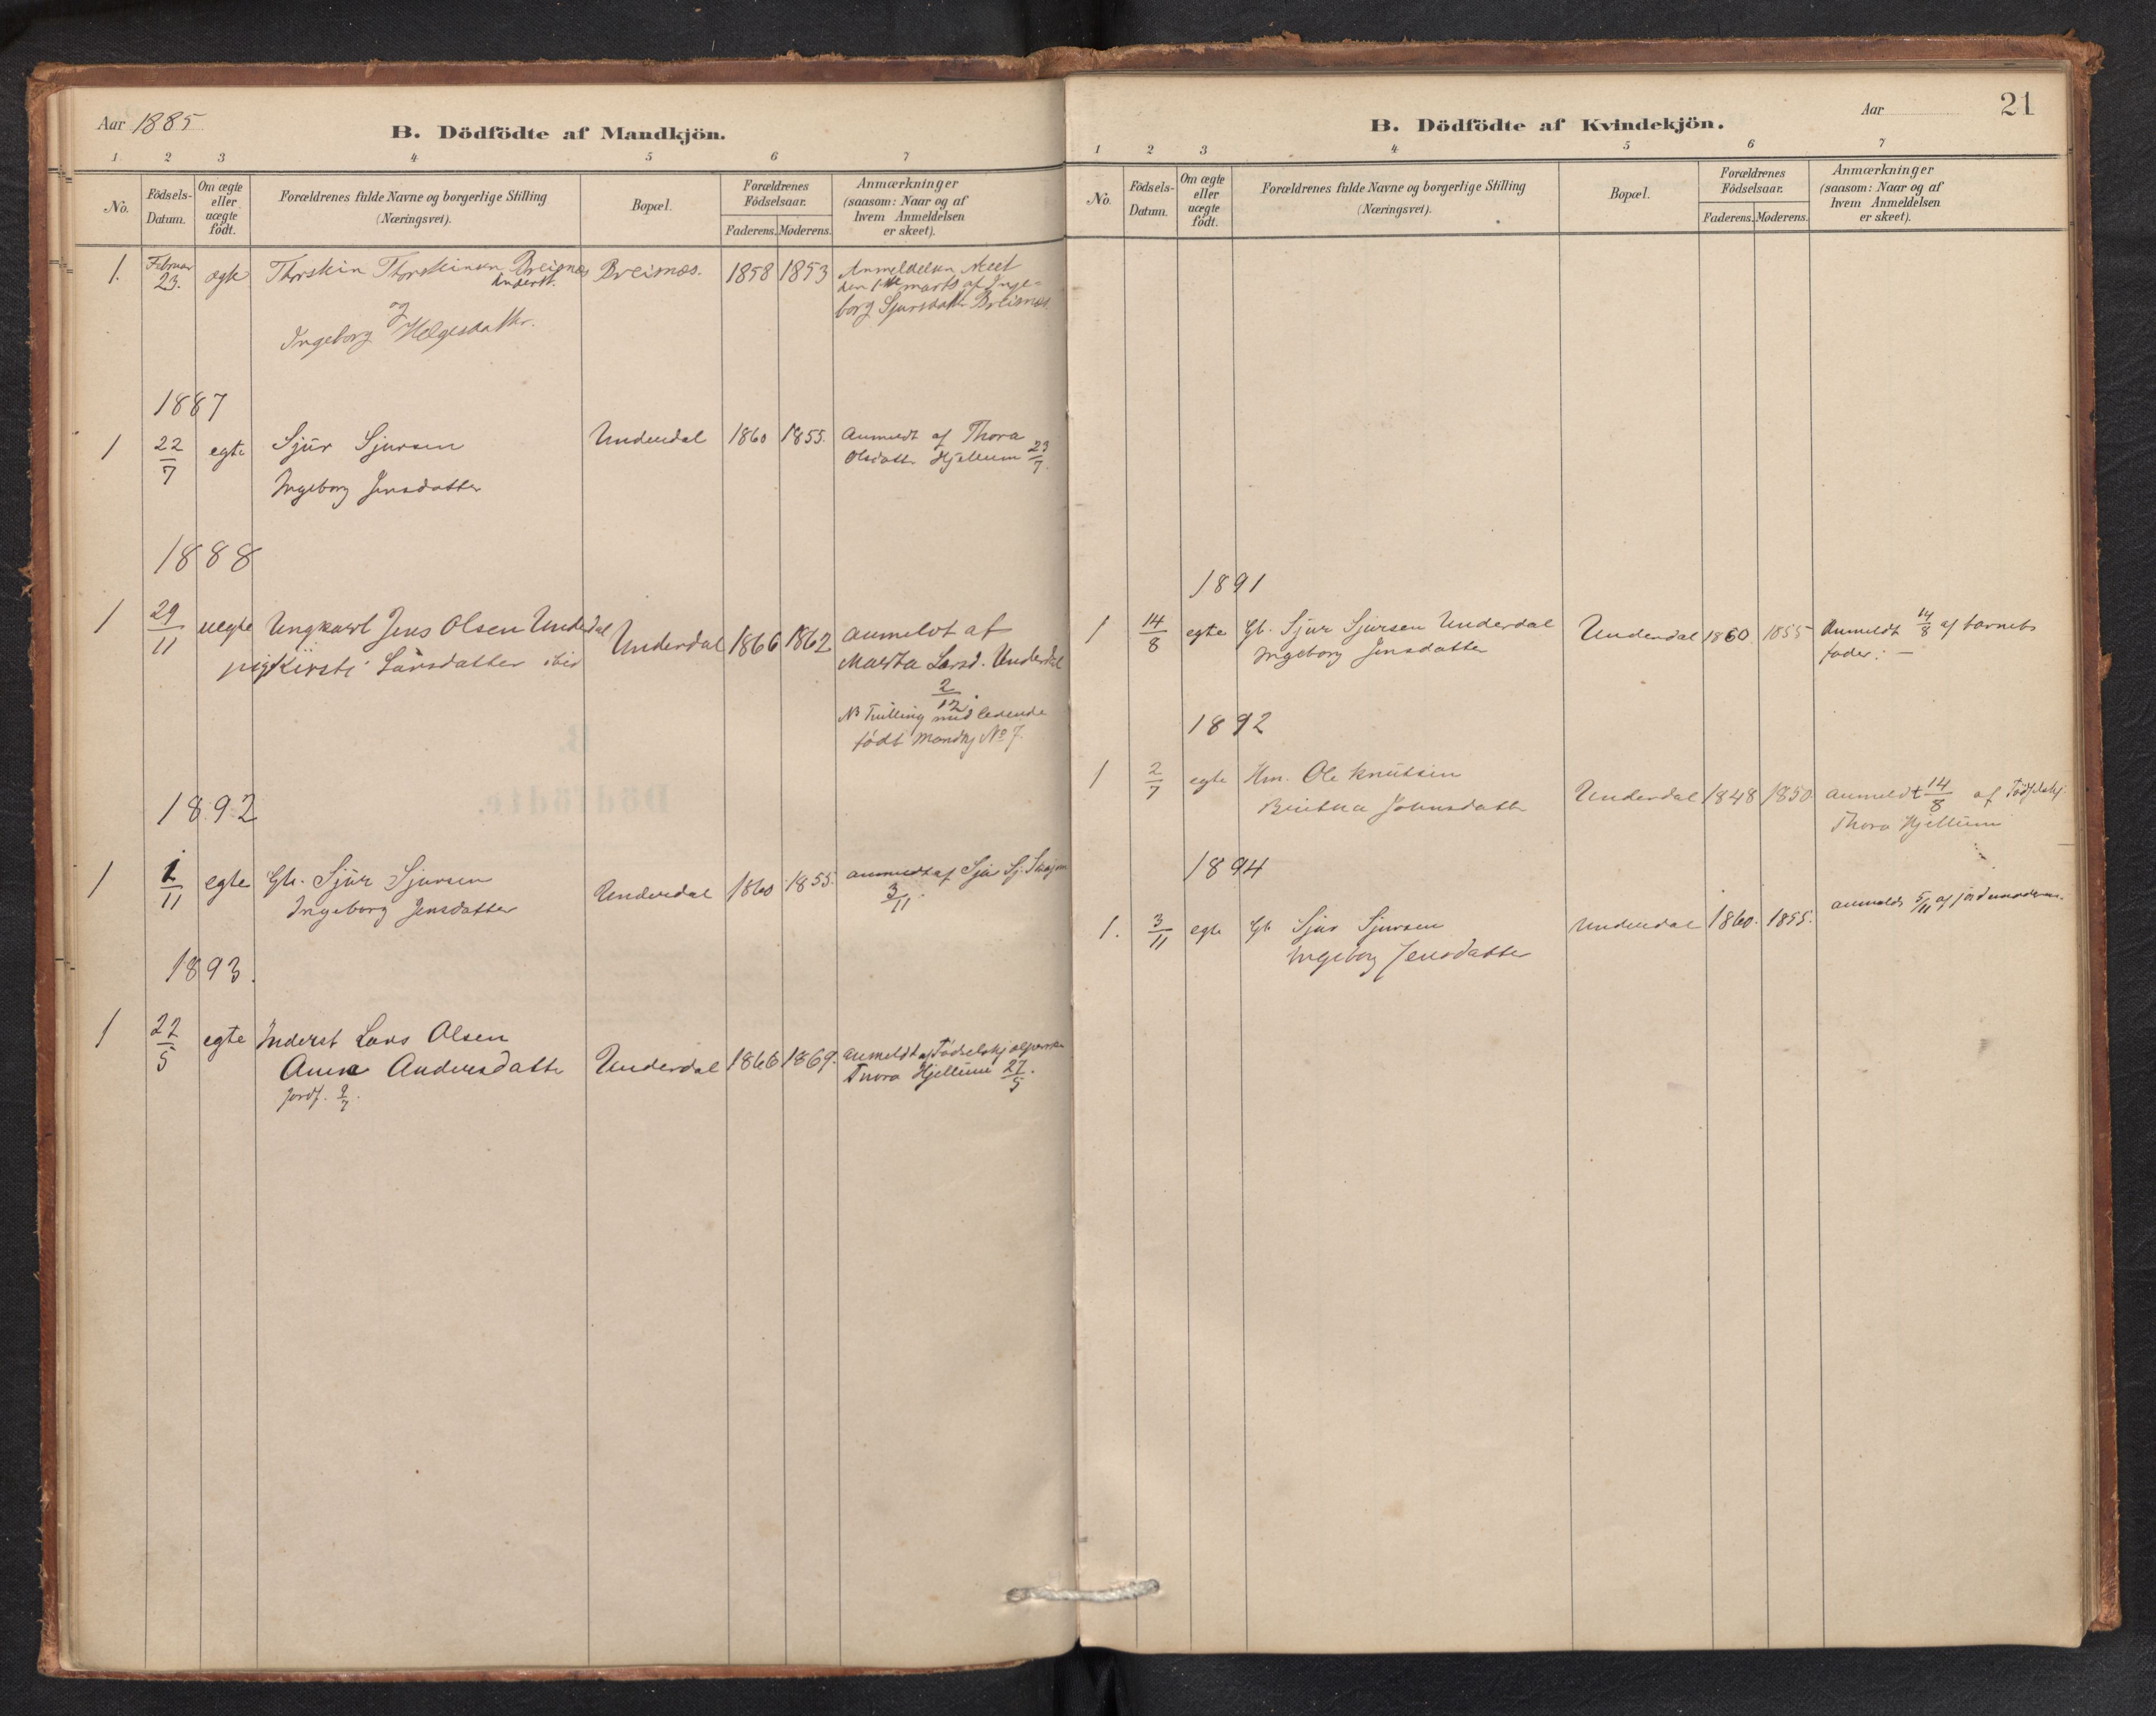 Aar 1885
B. Dödfödte af Mandkjön.
1 2 3 4 5 6 7
No.
Födsels-
Datum.
Om ægte
eller
uægte
födt.
Forældrenes fulde Navne og borgerlige Stilling
(Næringsvei).
Bopæl.
Forældrenes
Födselsaar.
Faderens. Moderens.
Anmærkninger
(saasom: Naar og af
hvem Anmeldelsen
er skeet).
1. Februar 23. ægte Thorstein Thorsteinsen Breisnes Breisnæs. 1858 1853 Anmeldelsen skeet
Inderst. den 1ste marts af Inge-
og borg Sjursdatter Breisnæs.
Ingeborg Helgesdatter.
1887
1 22/7 egte Sjur Sjursen Underdal 1860 1855. Anmeldt af Thora
Olsdatter Hjellum 23/7.
Ingeborg Jensdatter
1888
1 29/11 uegte Ungkarl Jens Olsen Underdal Underdal 1866 1862 anmeldt af
pig Kirsti Larsdatter ibid Martha Larsd. Underdal
2/12.
NB Tvilling med levende
født Mandkj No 7.
1892
1 1/11 egte Gb. Sjur Sjursen Underdal 1860 1855. anmeldt af Sju Sj.
Ingeborg Jensdatter 3/11.
1893.
1 22/5 egte Inderst Lars Olsen Underdal 1866 1869. anmeldt af Födselshjælperske
Anna Andersdatter Thora Hjellum 27/5.
Jordf. 9/7.
21
Aar
B. Dödfödte af Kvindekjön.
1 2 3 4 5 6 7
No.
Födsels-
Datum.
Om ægte
eller
uægte
födt.
Forældrenes fulde Navne og borgerlige Stilling
(Næringsvei).
Bopæl.
Forældrenes
Födselsaar.
Faderens. Moderens.
Anmærkninger
(saasom: Naar og af
hvem Anmeldelsen
er skeet).
1891
1 14/8 egte Gb. Sjur Sjursen Underdal Underdal 1860 1855 Anmeldt 14/8 af barnets
Ingeborg Jensdatter fader. —
1892
1 2/7 egte Hm. Ole Knutsen Underdal 1848 1850 anmeldt 14/8 af Födselshj.
Johnsdatter Thora Hjellum
1894
1. 3/11 egte Gb Sjur Sjursen Underdal 1860. 1855. anmeldt 5/11 af jordemoderen.
Ingeborg Jensdatter